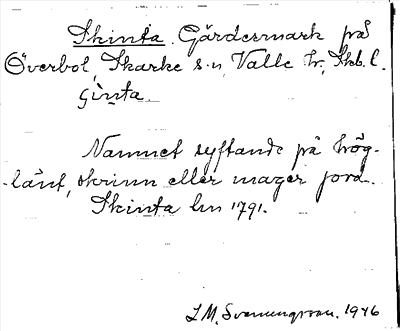 Skinta. Gärdesmark på
Överbol, Skarke s:n, Valle hr, Skb. l.
ʃinta.
Namnet syftande på hög-
länt, skrinn eller mager jord.
Skinta hm 1791.
I. M. Svenungsson. 1946